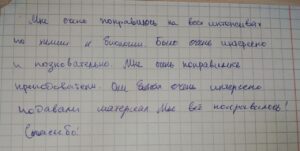 Мне очень понравилось на всех интенсивах
по химии и биологии. Было очень интересно
и познавательно. Мне очень понравились
преподователи. Они очень интересно
подавали материал. Мне всё понравилось!
Спасибо!